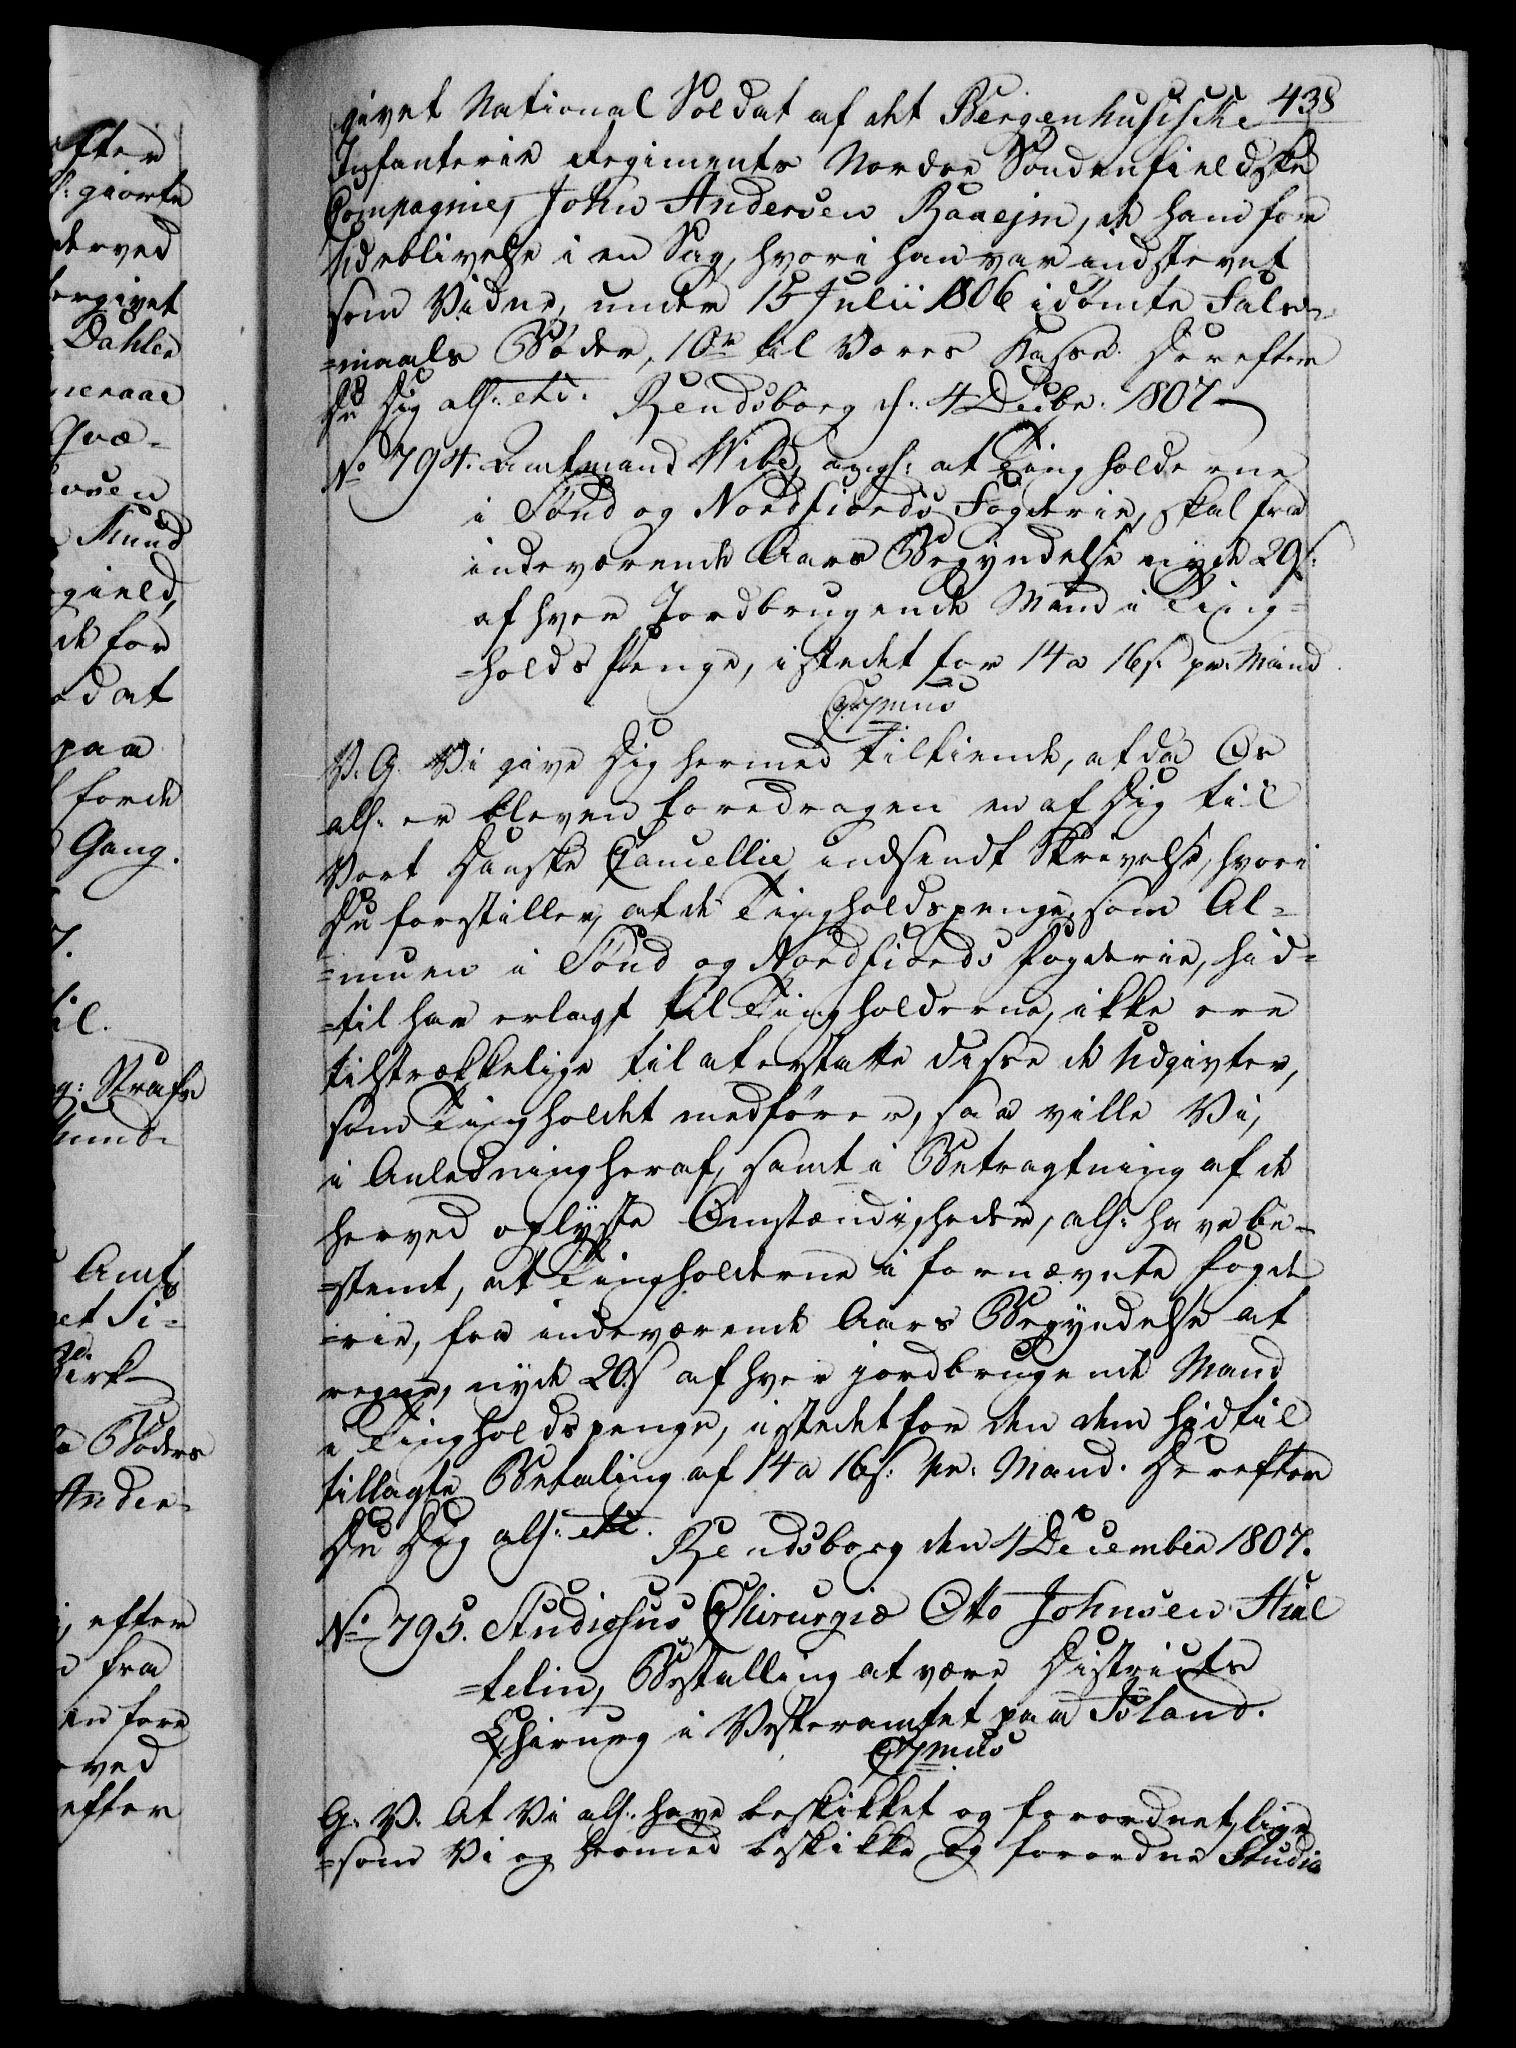 438
givet National Soldat af det Bergenhusiske
Infanterie Regiments Nordre Søndenfieldske
Compagnie, John Andersen Raaejm, de ham for
Udeblivelse i en Sag, hvori han var indstevnet
som Vidne, under 15 Julii 1806 idømte Fals-
=maals Bøder, 10 rd til Vores Kasse. Derefter
Du Dig alf: etc. Rendsborg d: 4 Decbr. 1807
No 794. Amtmand Wibe, angf: at Tingholderne
i Sønd og Nordfiords Fogderie, skal fra
indeværende Aars Begyndelse nyde 20 s:
af hver Jordbrugende Mand i Ting-
=holds Penge, istedet for 14 a 16 s. pr. Mand
C 7mus
V. G. Vi give Dig hermed tilkiende, at da Os
alf: er bleven foredragen en af Dig til
Vort Danske Cancellie indsendt Skrivelse, hvori
Du forestiller, at de Tingholdspenge, som Al-
=muen i Sønd og Nordfiords Fogderie, hid-
=til har erlagt til Tingholderne, ikke ere
tilstrækkelige til at erstatte disse de Udgivter,
som Tingholdet medfører, saa ville Vi,
i Anledning heraf, samt i Betragtning af de
herved oplyste Omstændigheder, alf: have be-
=stemt, at Tingholderne i fornævnte Fogde
=rie, fra indeværende Aars Begyndelse at
regne, nyde 20 s af hver jordbrugende Mand
i Tingholdspenge, istedet for den dem hidtil
tillagte Betaling af 14 a 16 s: pr: Mand. Derefter
Du Dig alf: etc. Rendsborg den 4 December 1807.
No 795. Studiosus Chirurgiæ Otto Johnsen Hial
=telin, Bestalling at være Districts
Chirurg i Vesteramtet paa Island.
C 7mus
G. V. At Vi alf: have beskikket og forordnet, lige
=som Vi og hermed beskikke og forordne Studio